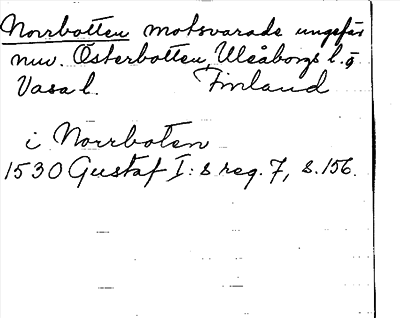 Norrbotten motsvarade ungefär
nuv. Österbotten, Uleåborgs l. o
Vasa l. Finland
i Norrboten
1530 Gustaf I:s reg. 7, s. 156.